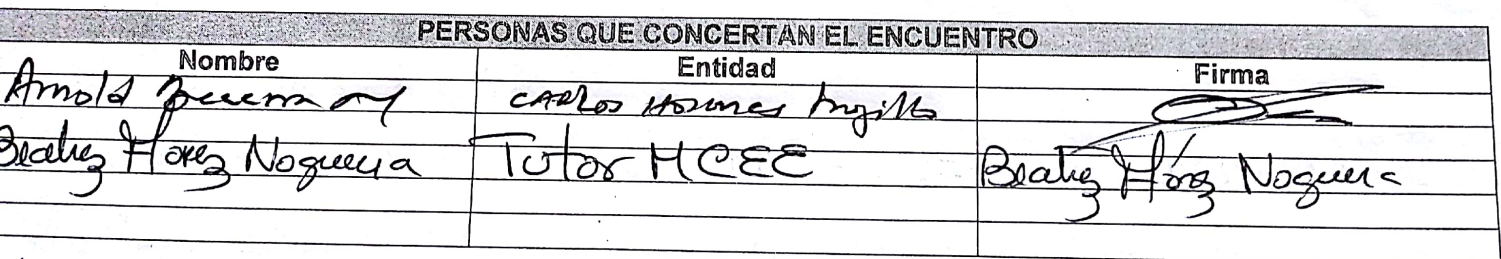 PERSONAS QUE CONCERTAN EL ENCUENTRO
Nombre Entidad Firma
Arnold CARLOS HOLMES Trujillo
Beatriz Flórez Noguera Tutor HCEE Beatriz Flórez Noguera